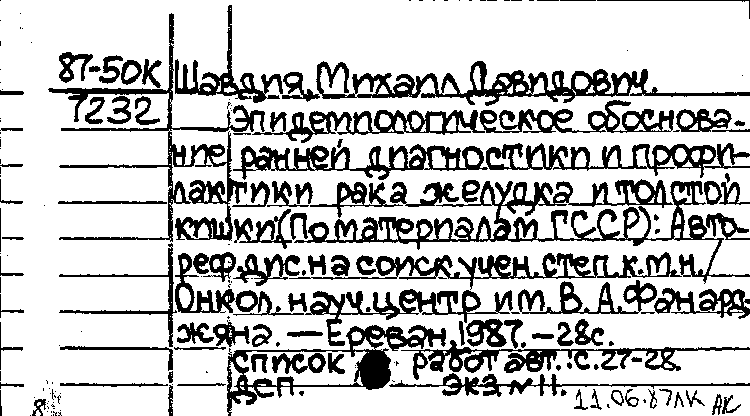 87-50К
7232
Шавдия, Михаил Давидович.
Эпидемиологическое обоснова-
ние ранней диагностики и профи-
лактики рака желудка и толстой
кишки(По материалам ГССР): Авто-
реф.дис.на соиск.учен.степ.к.м.н./
Онкол.науч.центр им.В.А.Фанард-
жяна. — Ереван,1987. -28с.
список работ авт.:с.27-28.
ДСП. Экз №11. 11.06.87ЛК АК
8